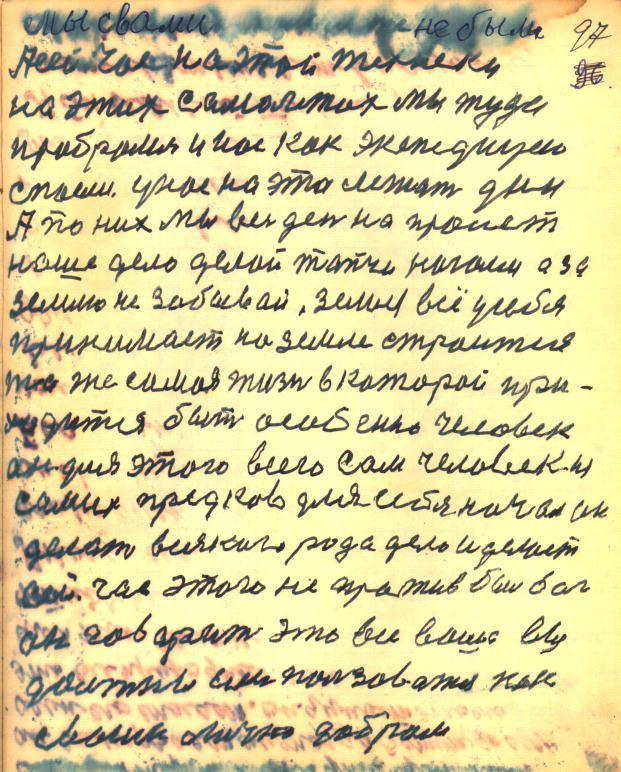 мы с вами не были 97
А сей час на этой технеки
на этих самолетах мы туда
пробромся и нас как экспедицию
спасли. у нас на эта лежат дни
А по них мы ве ден на пролет
наше дело делой топчи ногами а за
землю не забывай, земля всё у себя
принимает на земле строится
та же самая жизн в которой при-
ходится быт особенно человек
он для этого всего сам человек и
самих предков для себя начал он
делат всякого рода дело и делает
сей час этого не против был бог
он говарит это все ваше вы
должны им ползоватся как
своим лично добром